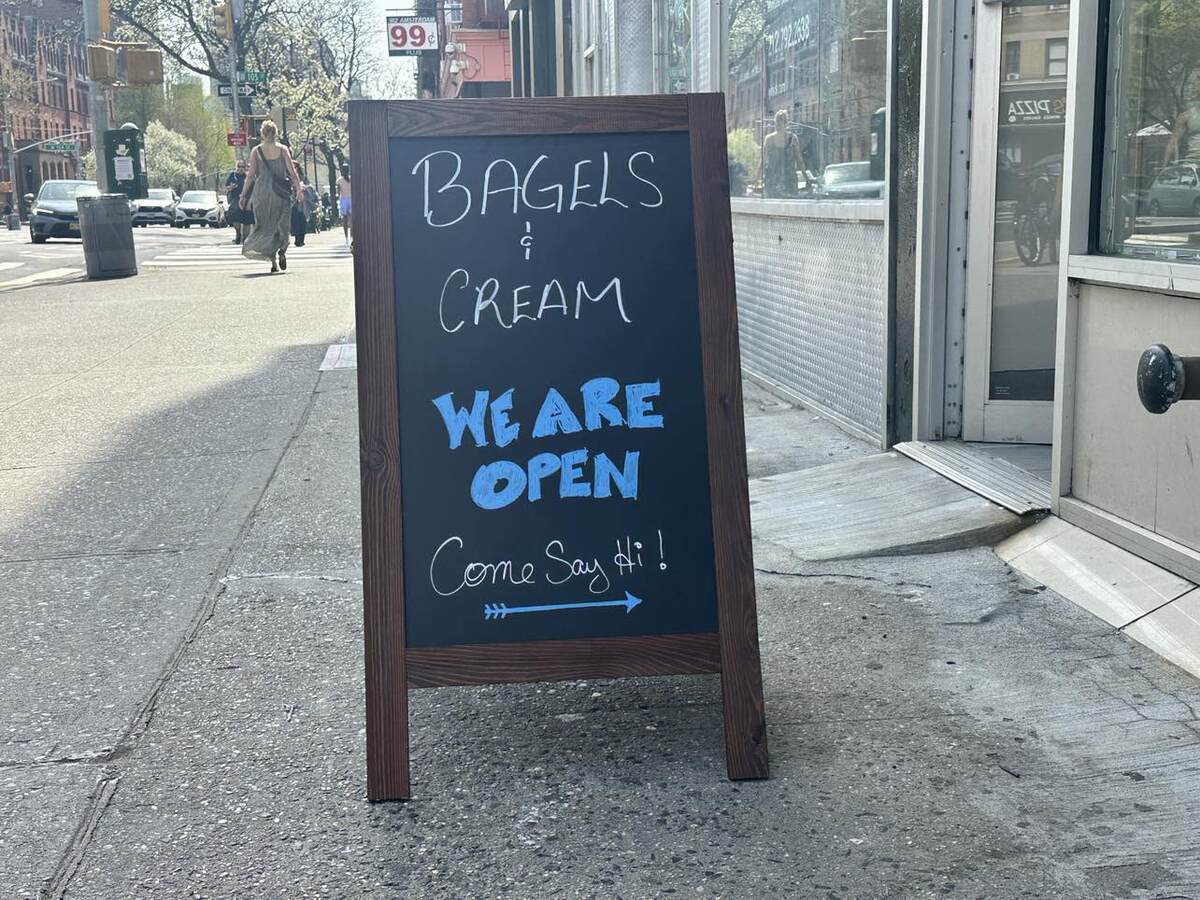 BAGELS
&
CREAM
WE ARE
OPEN
Come Say Hi!
99¢
PLUS
W 105
PIZZA